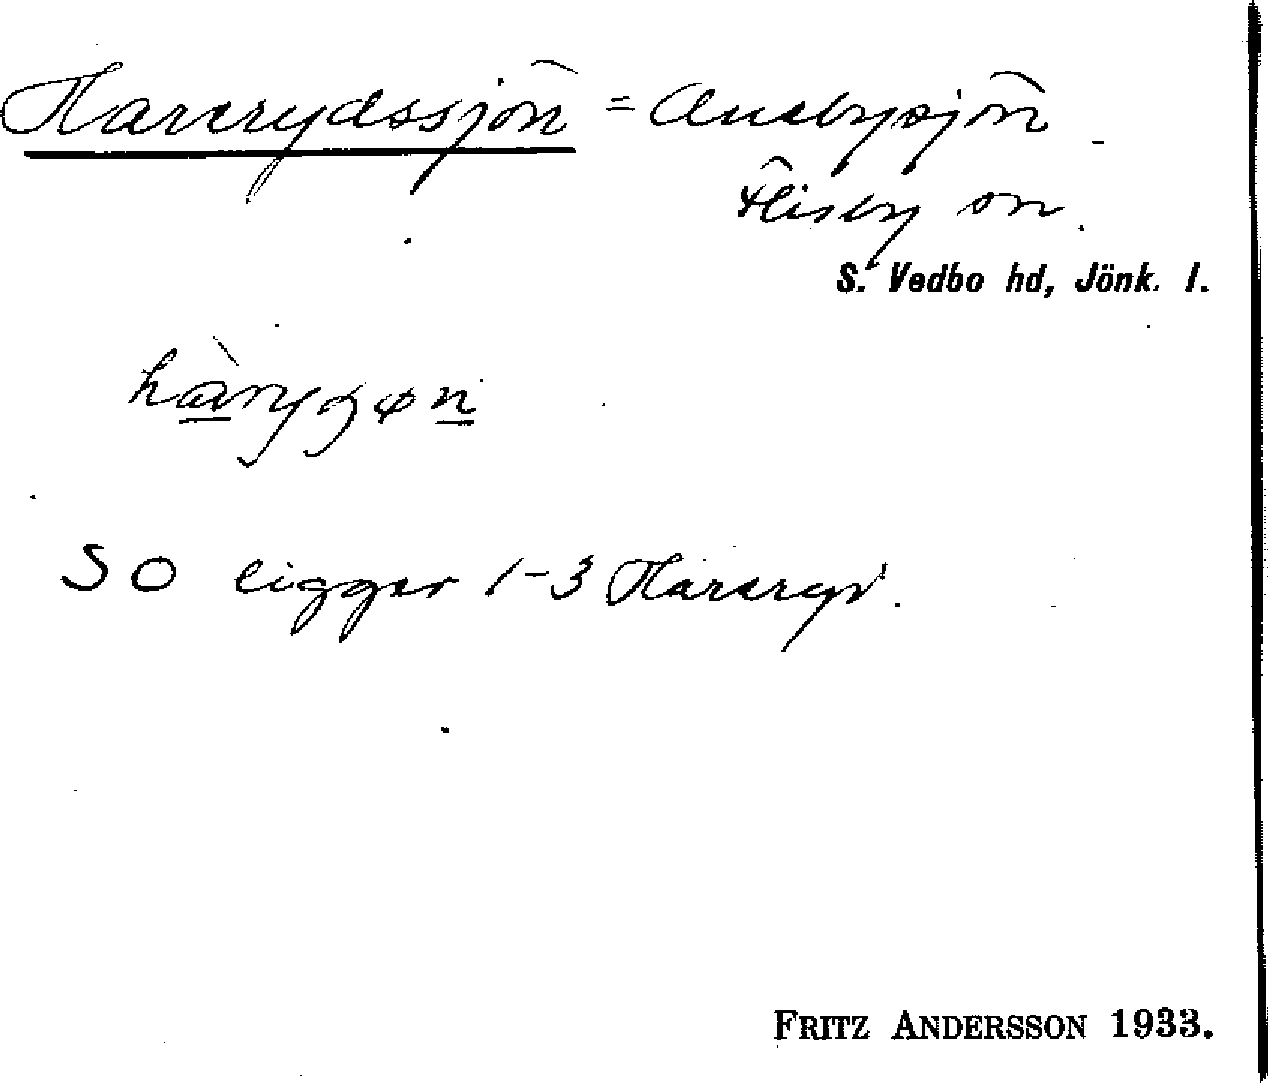 Harerydssjön = Anebysjön
Flisby sn.
S. Vedbo hd, Jönk. l.
SO ligger 1-3 Hareryd.
FRITZ ANDERSSON 1933.